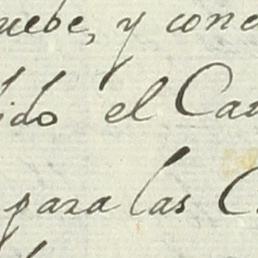 uebe, y conc
ido el Ca
para las C